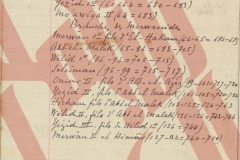 Yezid IIº (64 = 683)
Moawia II (64 = 683)
Branche de Merwanides
Merwan Iº fils d'el-Hakam (64-65 = 684-685)
Abd el Malek (65-86 = 685-705)
Welid Iº (86-96 = 705-715)
Soleiman (96-99 = 715-717)
Omar II, fils d'Abd el (99-101 = 717-720)
Yezid II, fils d'Abd el malek (101-105 = 720-724)
Hicham fils d'Abd el malek (105-125 = 724-743
Welid II, fils d'Abd el Malek (125-126 = 743-744)
Yezid III, fils de Welid Iº (126 = 744)
Merwan II el Himar (127-132 = 744-750)